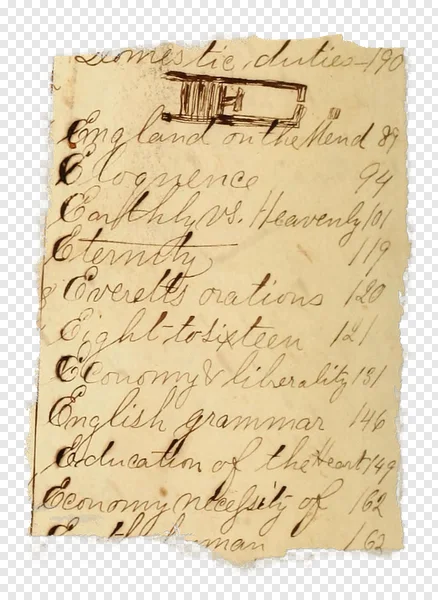 Domestic, duties 190
England on the Mend 89
Eloquence 94
Earthly vs. Heavenly 101
Eternity 119
Everetts orations 120
Eight to sixteen 121
Economy & liberality 131
English grammar 146
Education of the Heart 149
Economy necessity of 162
human 162